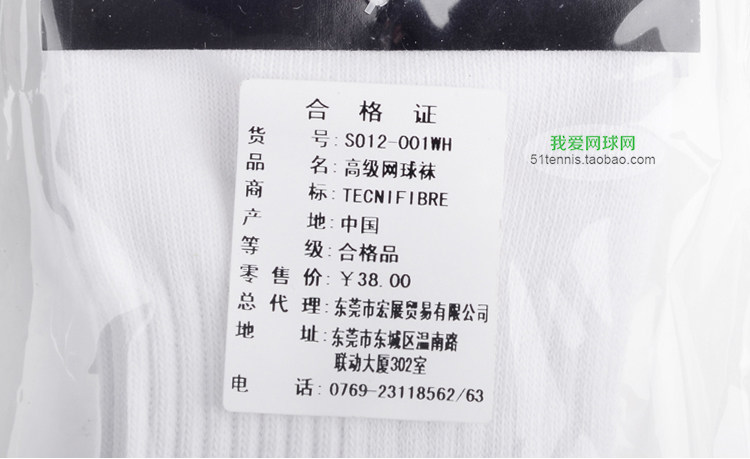 合格证
货号:S012-001WH
品名:高级网球袜
商标:TECNIFIBRE
产地:中国
等级:合格品
零售价:￥38.00
总代理:东莞市宏展贸易有限公司
地址:东莞市东城区温南路
联动大厦302室
电话:0769-23118562/63
我爱网球网
51tennis.taobao.com